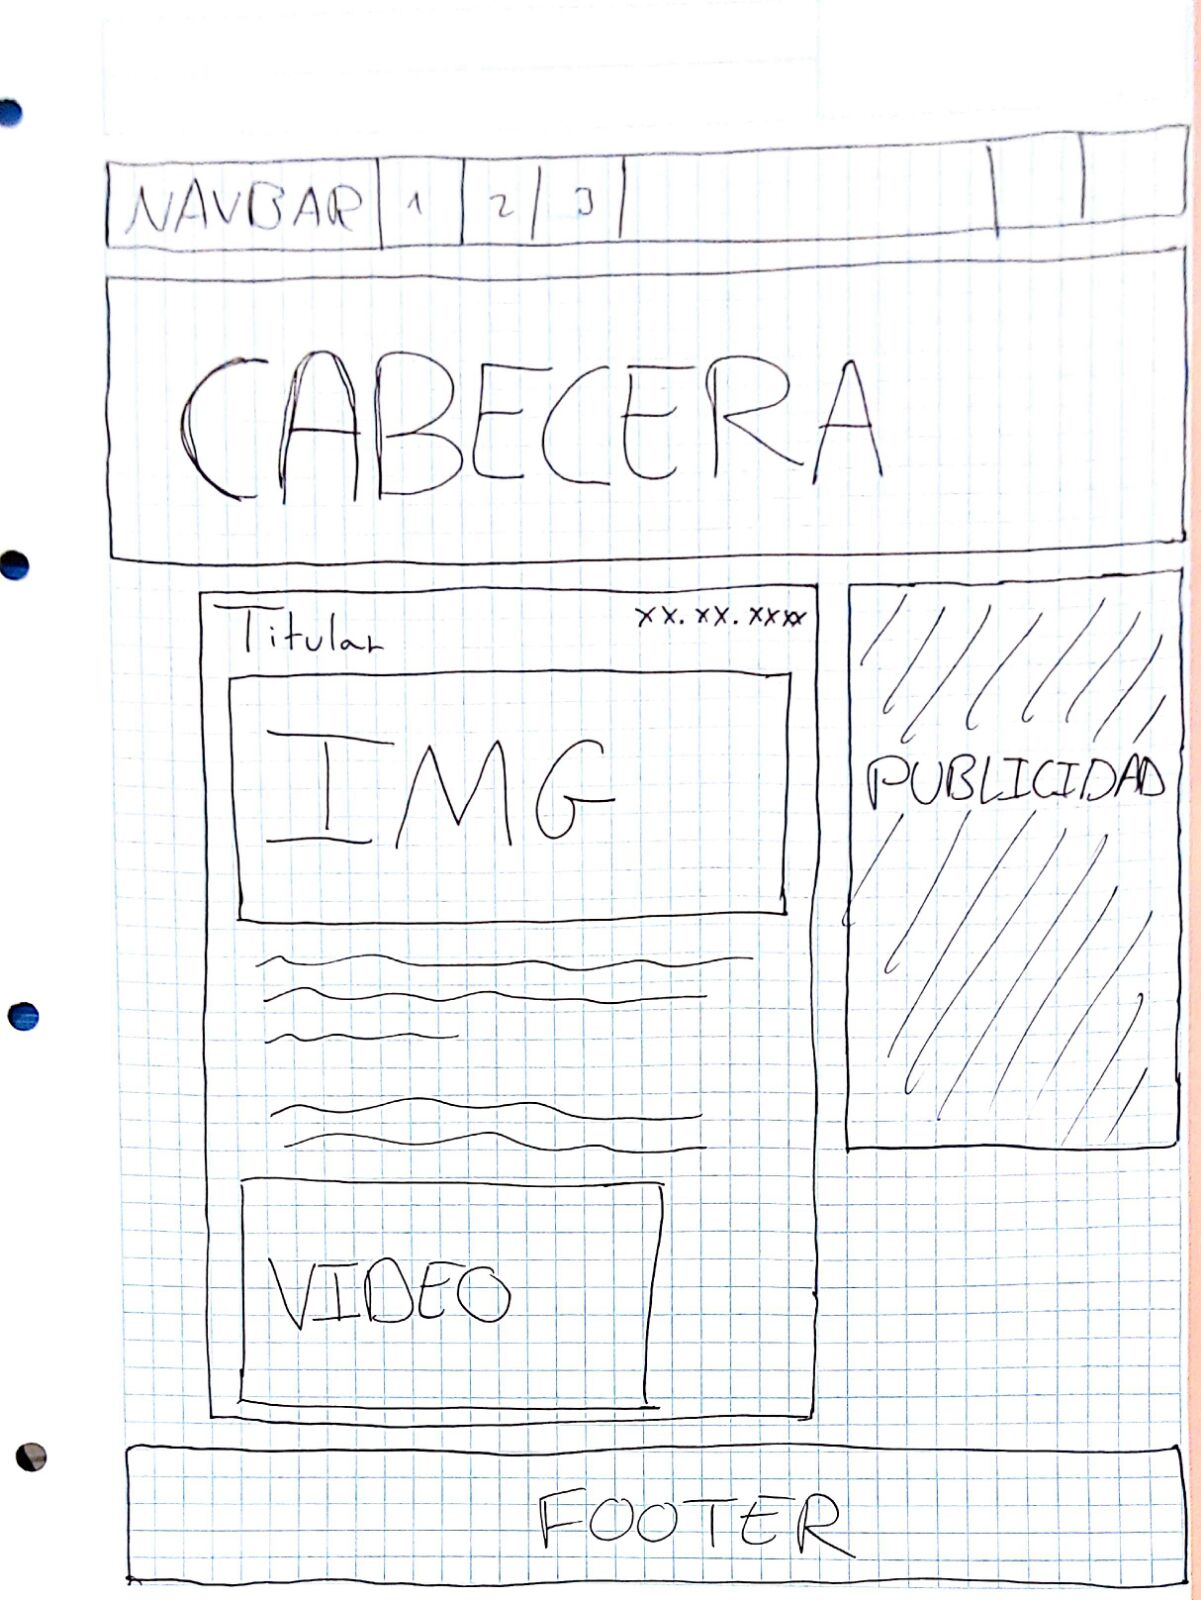 NAVBAR 1 2 3
CABECERA
Titular xx.xx.xxxx
IMG
PUBLICIDAD
VIDEO
FOOTER